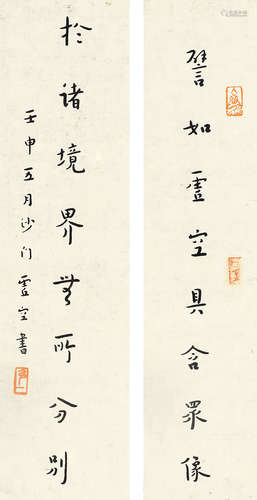 譬如虛空具含眾像
於諸境界無所分別
壬申五月沙门虛空書